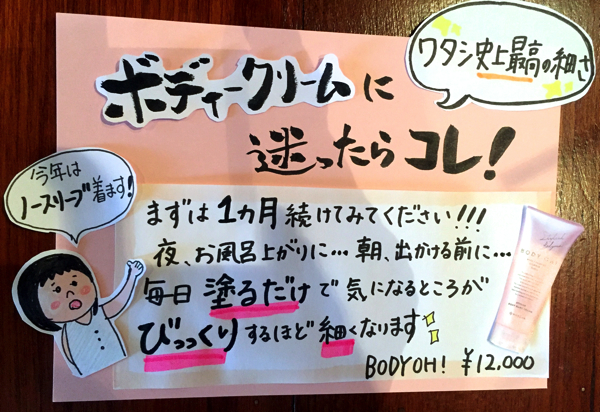 ワタシ史上最高の細さ
ボディークリームに
迷ったらコレ!
今年は
ノースリーブ着ます!
まずは1カ月続けてみてください!!!
夜、お風呂上がりに…朝、出かける前に…
毎日塗るだけで気になるところが
びっっくりするほど細くなります
BODYOH! ¥12,000